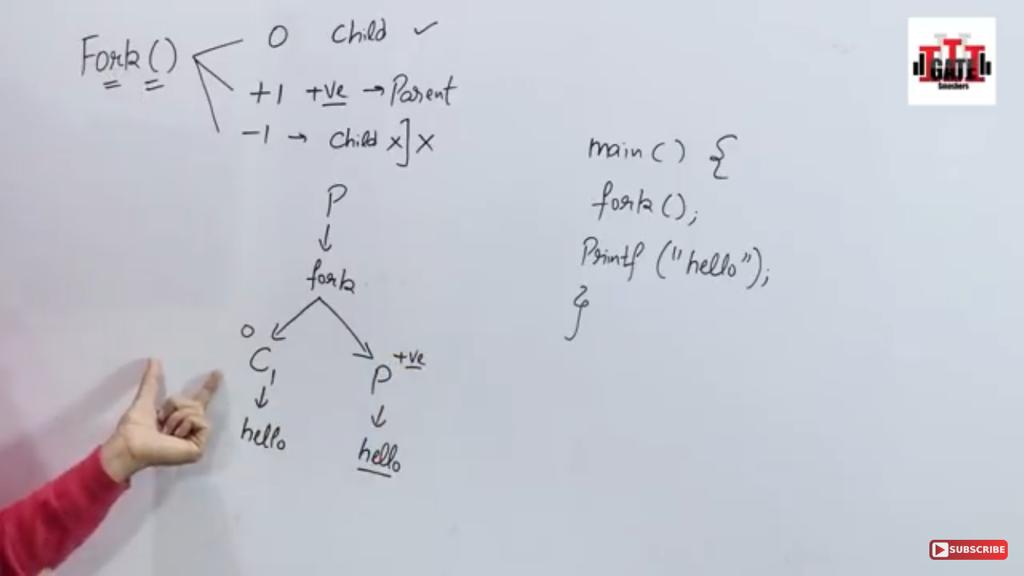 Fork()
0 Child ✓
+1 +ve → Parent
-1 → Child x] x
P
↓
fork
0
C1
+ve
P
↓
hello
↓
hello
main() {
fork();
Printf ("hello");
}
GATE
Smashers
SUBSCRIBE